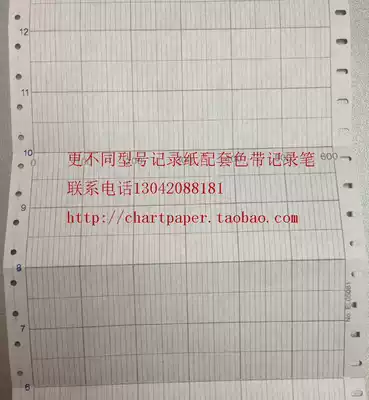 12
10
0
600
更不同型号记录纸配套色带记录笔
联系电话13042088181
9
http://chartpaper.taobao.com
8
7
6